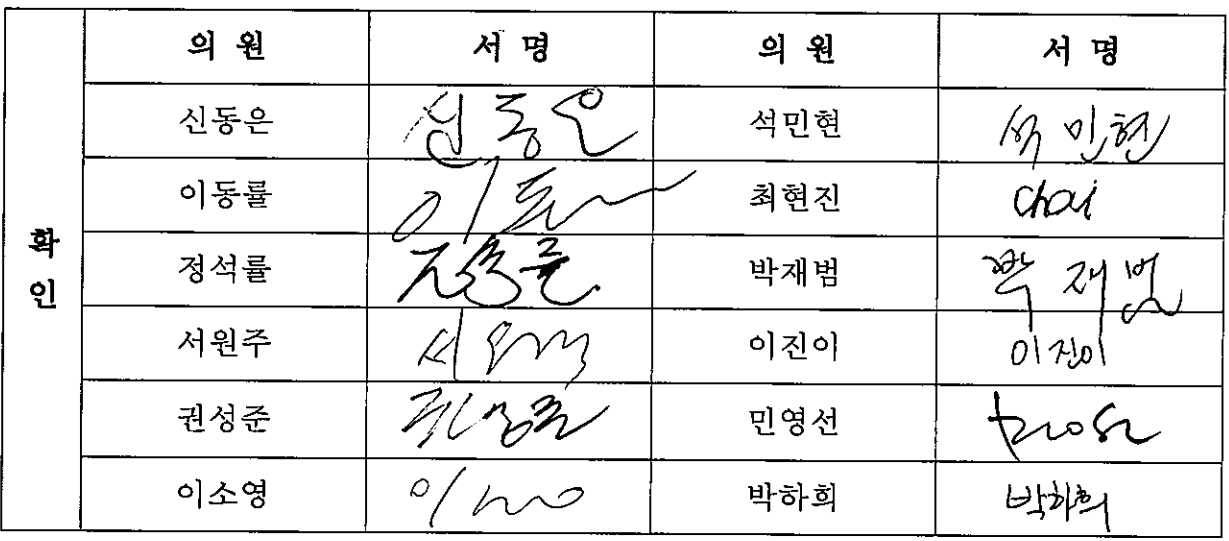 확인
의 원 서 명 의 원 서 명
신동은 신동은 석민현 석민현
이동률 최현진 Choi
정석률 정석률 박재범 박재범
서원주 서원주 이진이 이진이
권성준 권성준 민영선
이소영 박하희 박하희